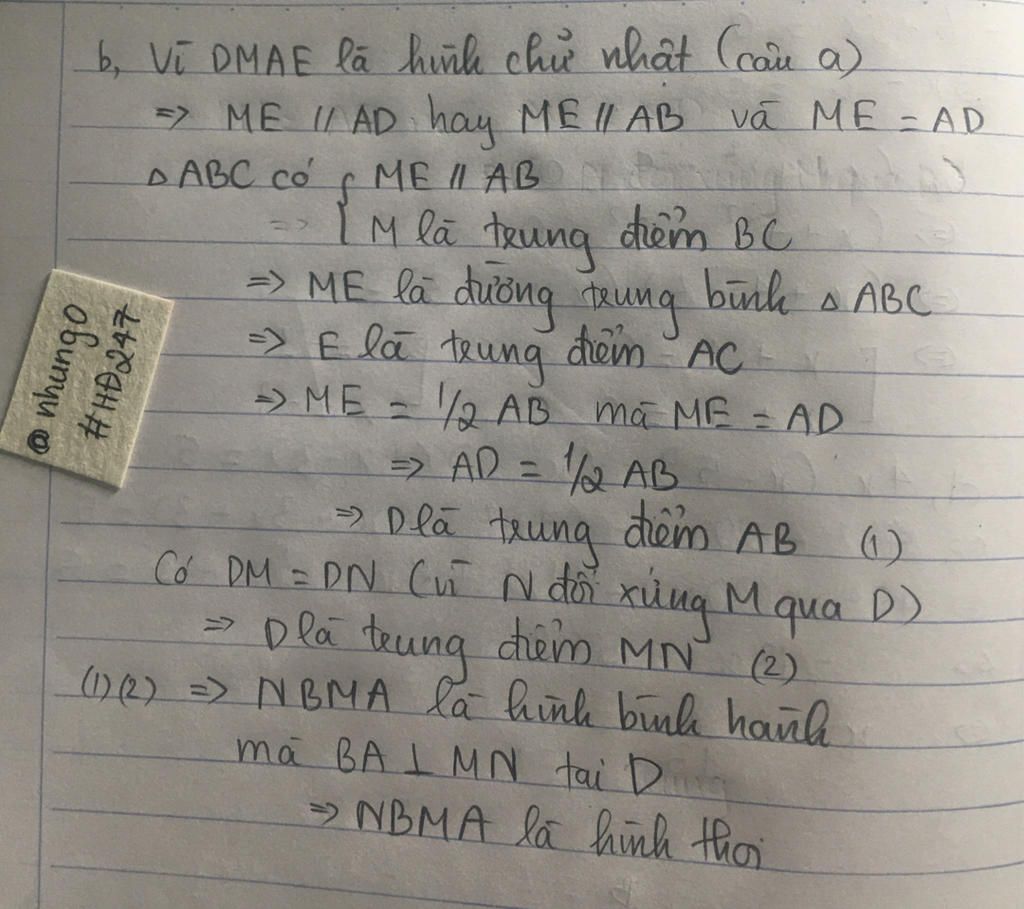 b, Vì DMAE là hình chữ nhật (câu a)
=> ME // AD hay ME // AB và ME = AD
△ ABC có { ME // AB
=> { M là trung điểm BC
=> ME là đường trung bình △ ABC
=> E là trung điểm AC
=> ME = 1/2 AB mà ME = AD
=> AD = 1/2 AB
=> D là trung điểm AB (1)
Có DM = DN (vì N đối xứng M qua D)
=> D là trung điểm MN (2)
(1)(2) => NBMA là hình bình hành
mà BA ⊥ MN tại D
=> NBMA là hình thoi
@nhungo
#HĐ247